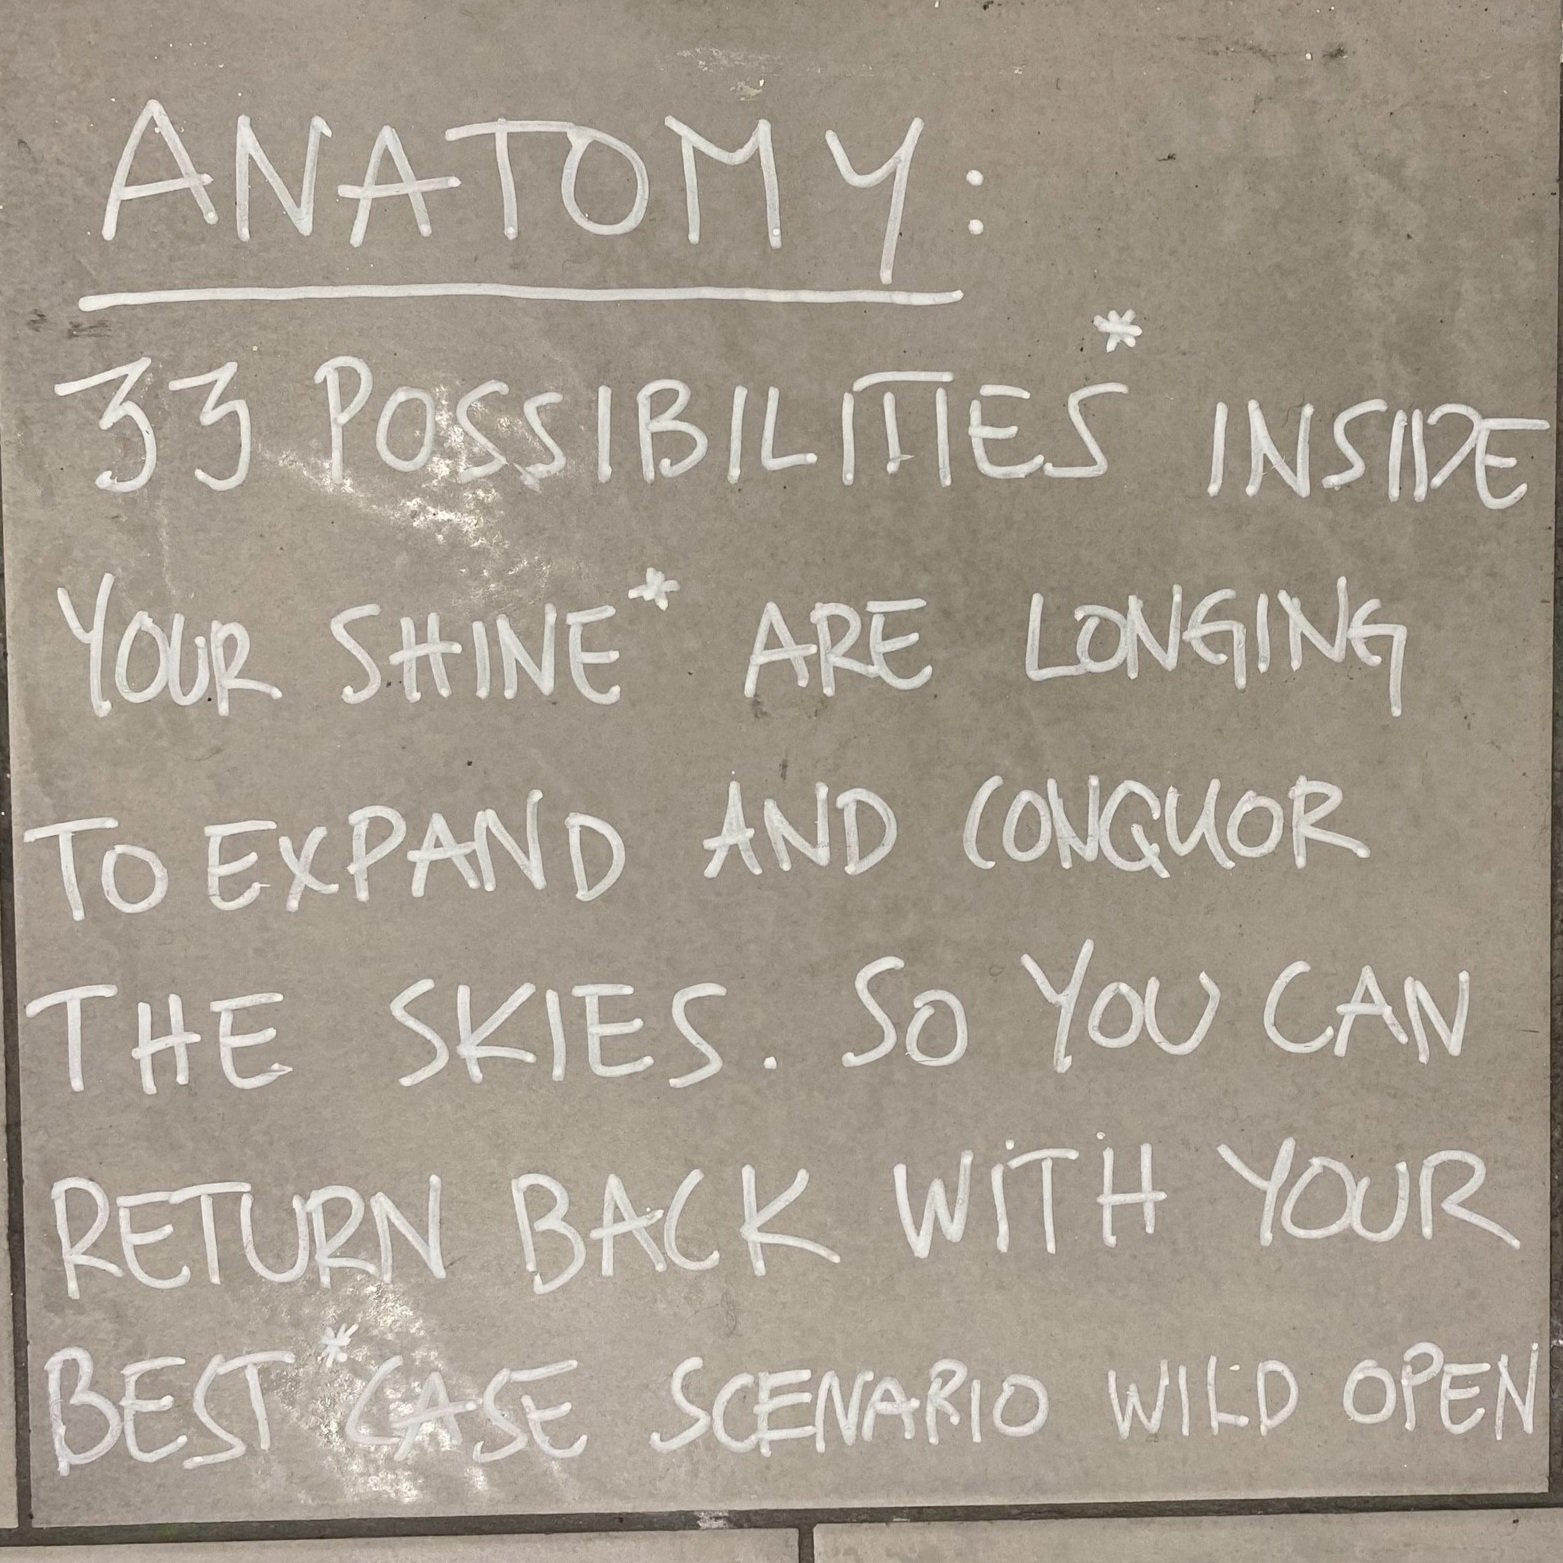 ANATOMY:
33 POSSIBILITIES* INSIDE
YOUR SHINE* ARE LONGING
TO EXPAND AND CONQUOR
THE SKIES. SO YOU CAN
RETURN BACK WITH YOUR
BEST*CASE SCENARIO WILD OPEN